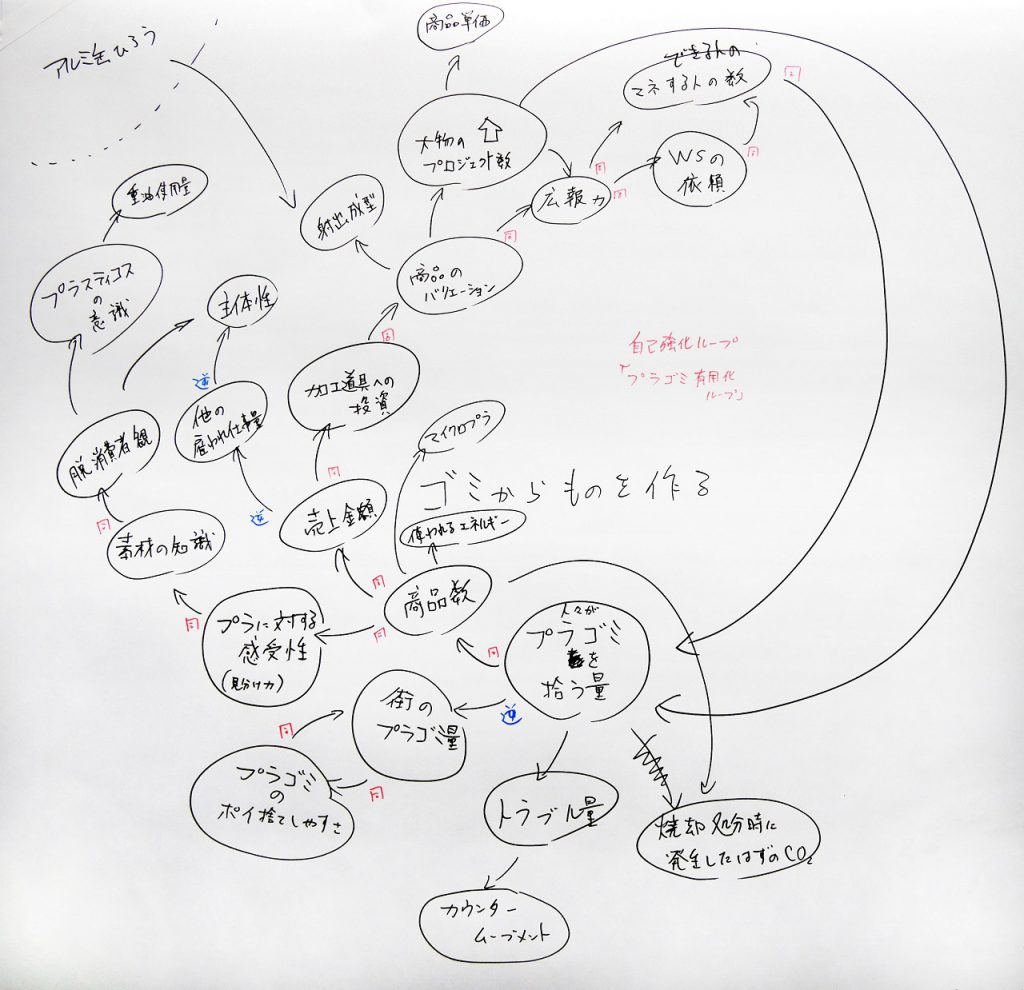 商品単価
アルミ缶ひろう
できる人の
マネする人の数
同
大物の
プロジェクト数
WSの
依頼
同
同
同
重油使用量
広報力
射出成型
同
商品の
バリエーション
プラスティコス
の
意識
主体性
同
自己強化ループ
「プラゴミ有用化
ループ」
加工道具への
投資
逆
他の
雇われ仕事量
マイクロプラ
脱消費者観
ゴミからものを作る
同
売上金額
逆
同
使われるエネルギー
素材の知識
同
商品数
人々が
プラゴミ
を
拾う量
同
プラに対する
感受性
(見分け力)
同
同
街の
プラゴミ量
逆
同
プラゴミ
の
ポイ捨てしやすさ
同
トラブル量
焼却処分時に
発生したはずのCO2
カウンター
ムーブメント